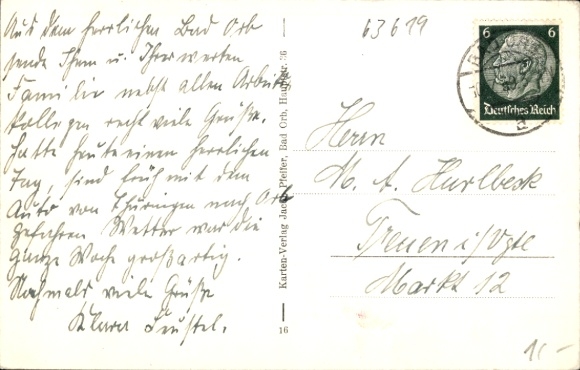 Aus dem herrlichen Bad Orb
sende Ihnen u. Ihrer werten
Familie nebst allen Arbeits
kollegen recht viele Grüße.
Hatte heute einen herrlichen
Tag, sind früh mit dem
Auto von Thüringen nach Orb
gefahren. Wetter war die
ganze Woche großartig.
Nochmals viele Grüße
Klara
Karten-Verlag Jacob Pfeifer, Bad Orb, Hauptstr. 36
16
63619
6 6
Deutsches Reich
Herrn
M. A. Hurlbeck
Treuen i/Vgtl
Markt 12